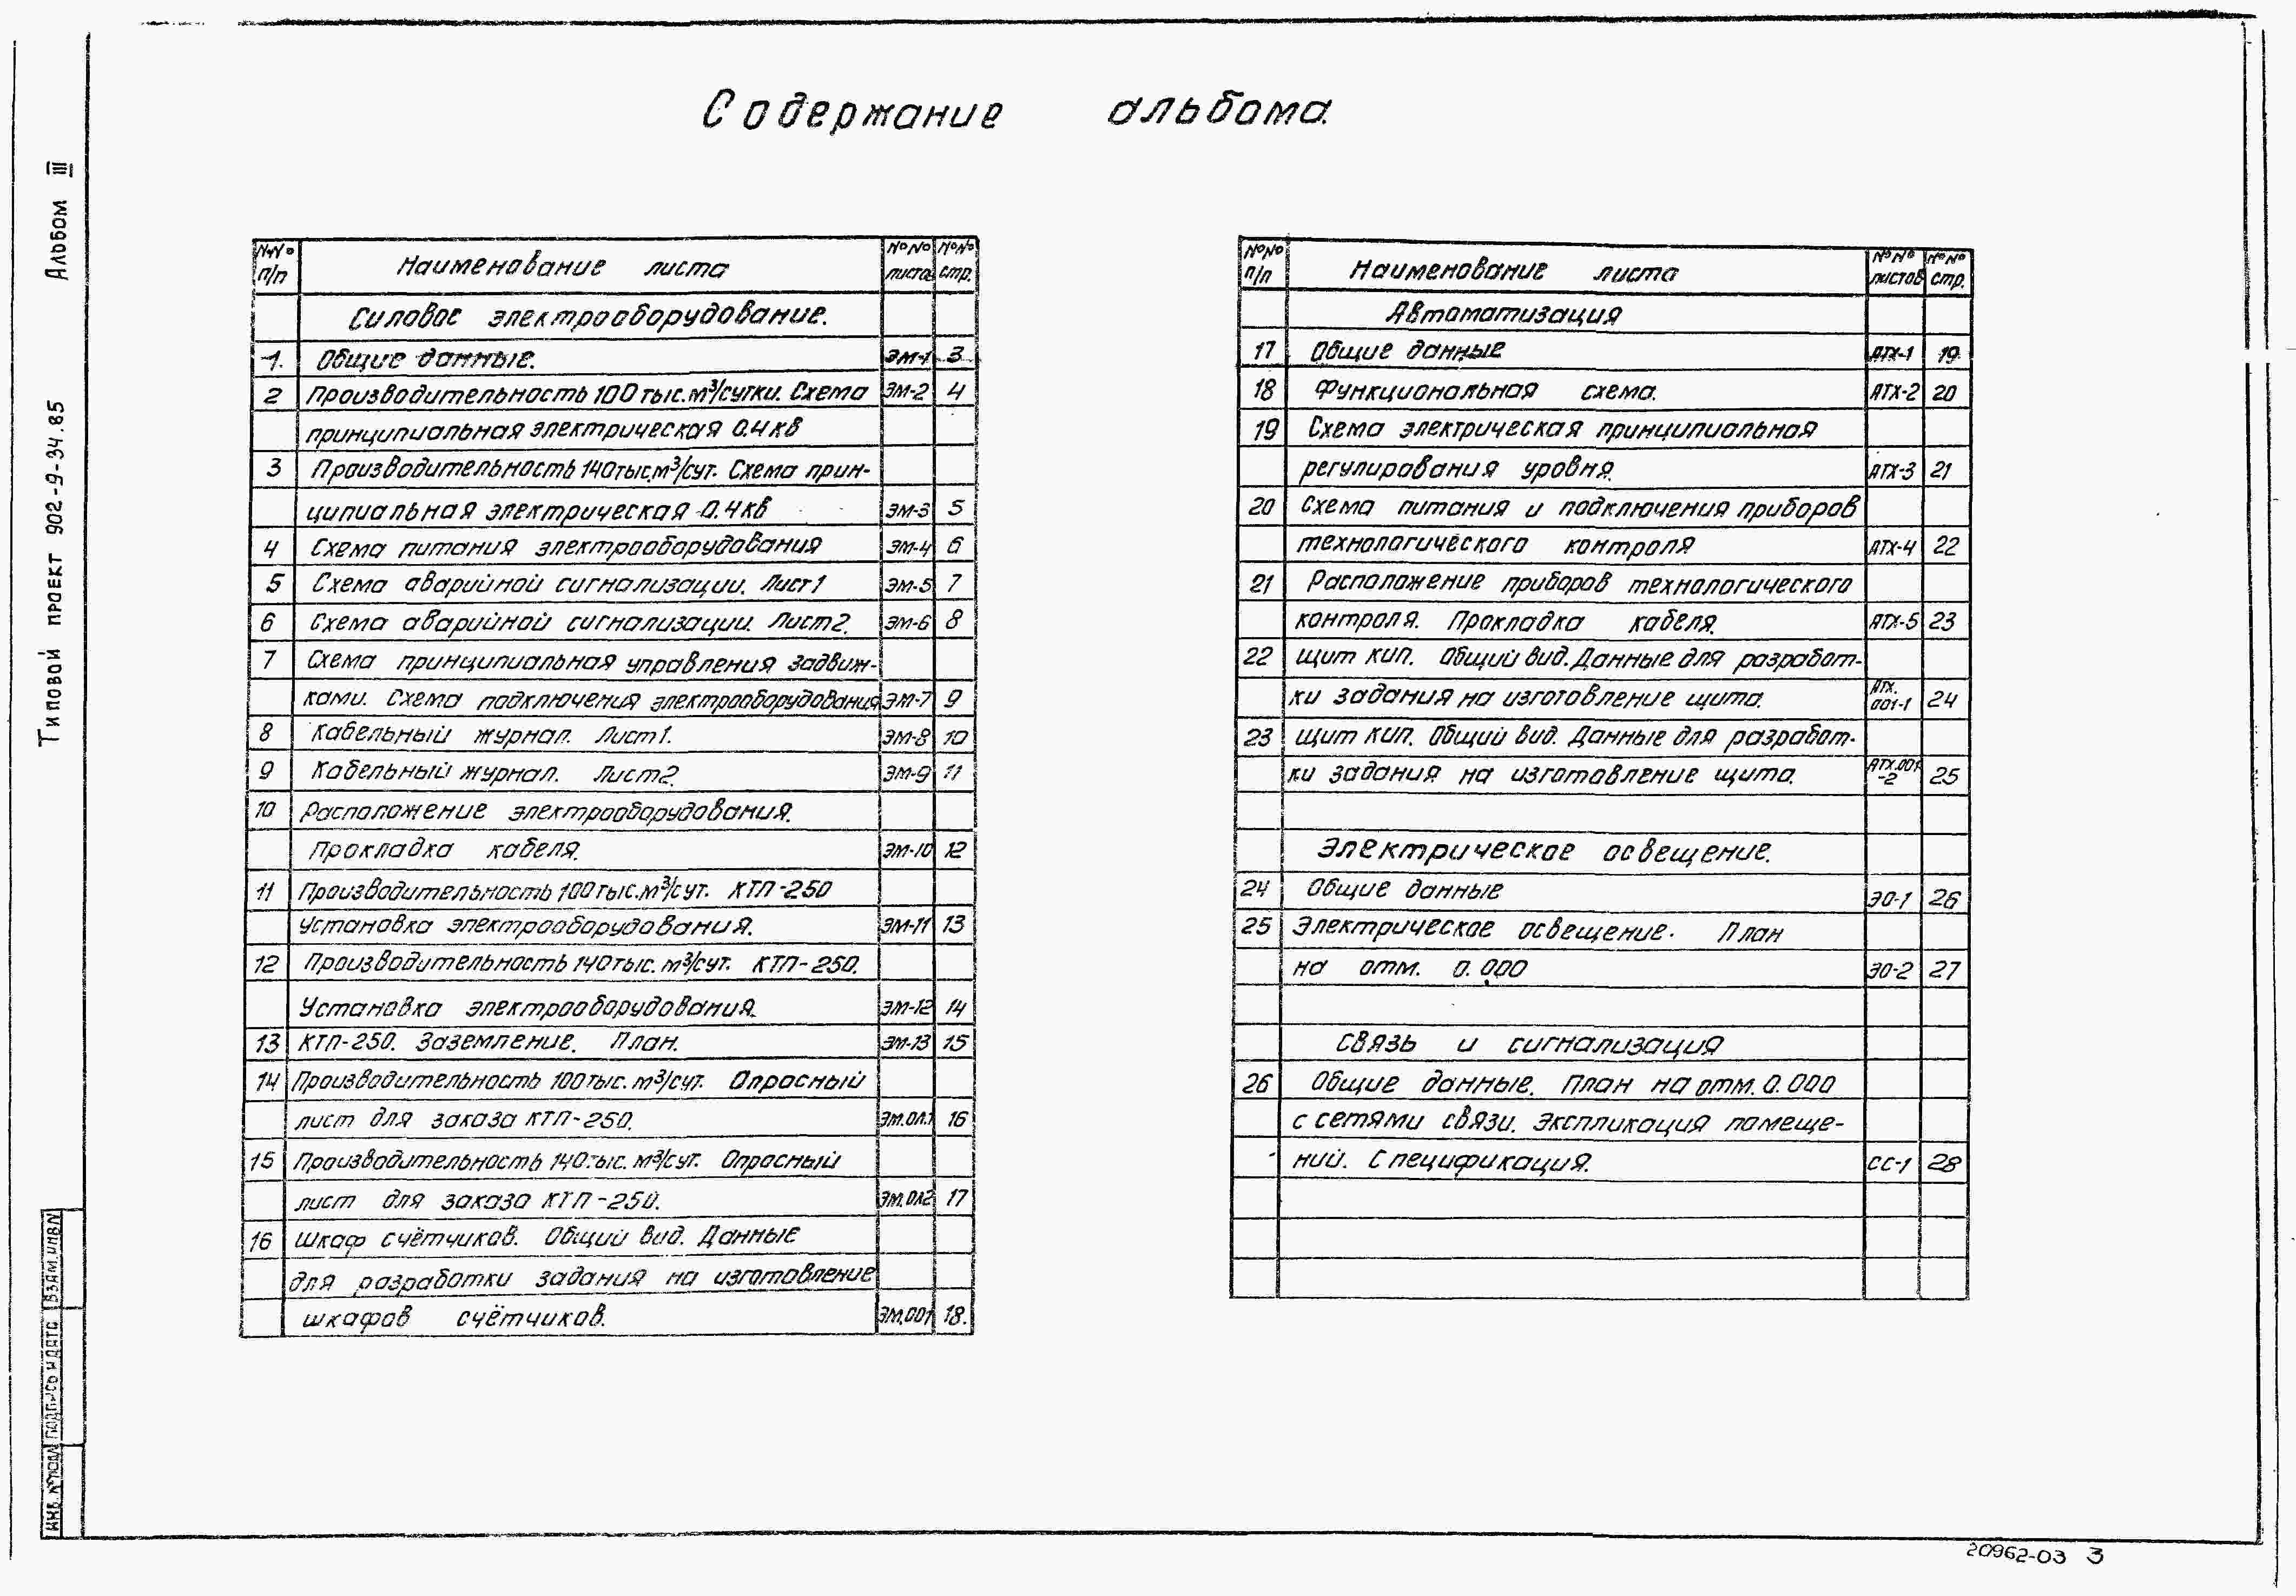 Содержание альбома.
Альбом III
Типовой проект 902-9-34.85
№№ п/п Наименование листа №№ листа №№ стр.
Силовое электрооборудование.
1. Общие данные. ЭМ-1 3
2 Производительность 100 тыс. м³/сутки. Схема ЭМ-2 4
принципиальная электрическая 0.4кв
3 Производительность 140тыс.м³/сут. Схема прин-
ципиальная электрическая 0.4кв ЭМ-3 5
4 Схема питания электрооборудования ЭМ-4 6
5 Схема аварийной сигнализации. Лист 1 ЭМ-5 7
6 Схема аварийной сигнализации. Лист 2. ЭМ-6 8
7 Схема принципиальная управления задвиж-
ками. Схема подключения электрооборудования ЭМ-7 9
8 Кабельный журнал. Лист 1. ЭМ-8 10
9 Кабельный журнал. Лист 2. ЭМ-9 11
10 Расположение электрооборудования.
Прокладка кабеля. ЭМ-10 12
11 Производительность 100тыс.м³/сут. КТП-250
Установка электрооборудования. ЭМ-11 13
12 Производительность 140тыс. м³/сут. КТП-250.
Установка электрооборудования. ЭМ-12 14
13 КТП-250. Заземление. План. ЭМ-13 15
14 Производительность 100тыс. м³/сут. Опросный
лист для заказа КТП-250. ЭМ.ОЛ.1 16
15 Производительность 140тыс. м³/сут. Опросный
лист для заказа КТП-250. ЭМ.ОЛ2 17
16 Шкаф счётчиков. Общий вид. Данные
для разработки задания на изготовление
шкафов счётчиков. ЭМ.001 18.
№№ п/п Наименование листа №№ листов №№ стр.
Автоматизация
17 Общие данные АТХ-1 19
18 Функциональная схема. АТХ-2 20
19 Схема электрическая принципиальная
регулирования уровня. АТХ-3 21
20 Схема питания и подключения приборов
технологического контроля АТХ-4 22
21 Расположение приборов технологического
контроля. Прокладка кабеля. АТХ-5 23
22 Щит КИП. Общий вид. Данные для разработ-
ки задания на изготовление щита. АТХ.001-1 24
23 Щит КИП. Общий вид. Данные для разработ-
ки задания на изготовление щита. АТХ.001-2 25
Электрическое освещение.
24 Общие данные ЭО-1 26
25 Электрическое освещение. План
на отм. 0.000 ЭО-2 27
Связь и сигнализация
26 Общие данные. План на отм. 0.000
с сетями связи. Экспликация помеще-
ний. Спецификация. СС-1 28
Инв. № подл Подпись и дата Взам. инв N
20962-03 3